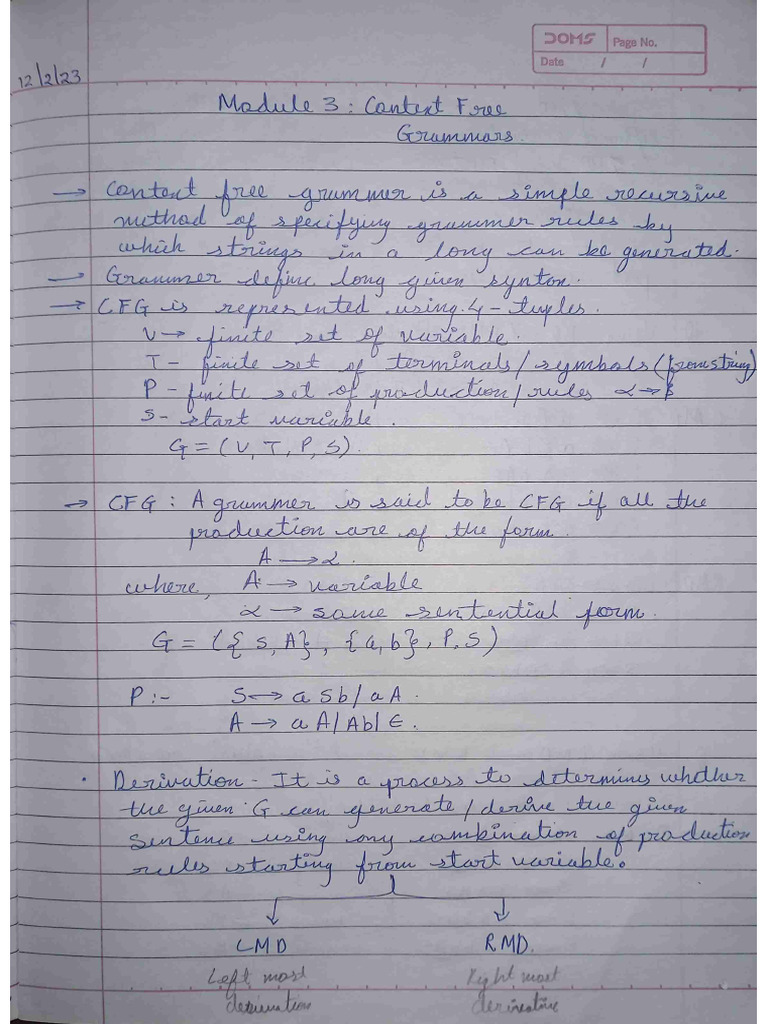 DOMS Page No.
Date / /
12/2/23
Module 3 : Context Free
Grammars.
→ Context free grammer is a simple recursive
method of specifying grammer rules by
which strings in a long can be generated.
→ Grammer define long given synton.
→ CFG is represented using 4-tuples.
V → finite set of variable.
T - finite set of terminals/symbols (from string)
P - finite set of production/rules α → β
S - start variable.
G = (V, T, P, S).
→ CFG : A grammer is said to be CFG if all the
production are of the form
A → α.
where, A → variable
α → some sentential form.
G = ({S, A}, {a, b}, P, S)
P :- S → aSb/aA.
A → aA/Ab/∈.
• Derivation - It is a process to determins whether
the given G can generate/derive the given
sentence using any combination of production
rules starting from start variable.
LMD RMD.
Left most Right most
derivation derivative